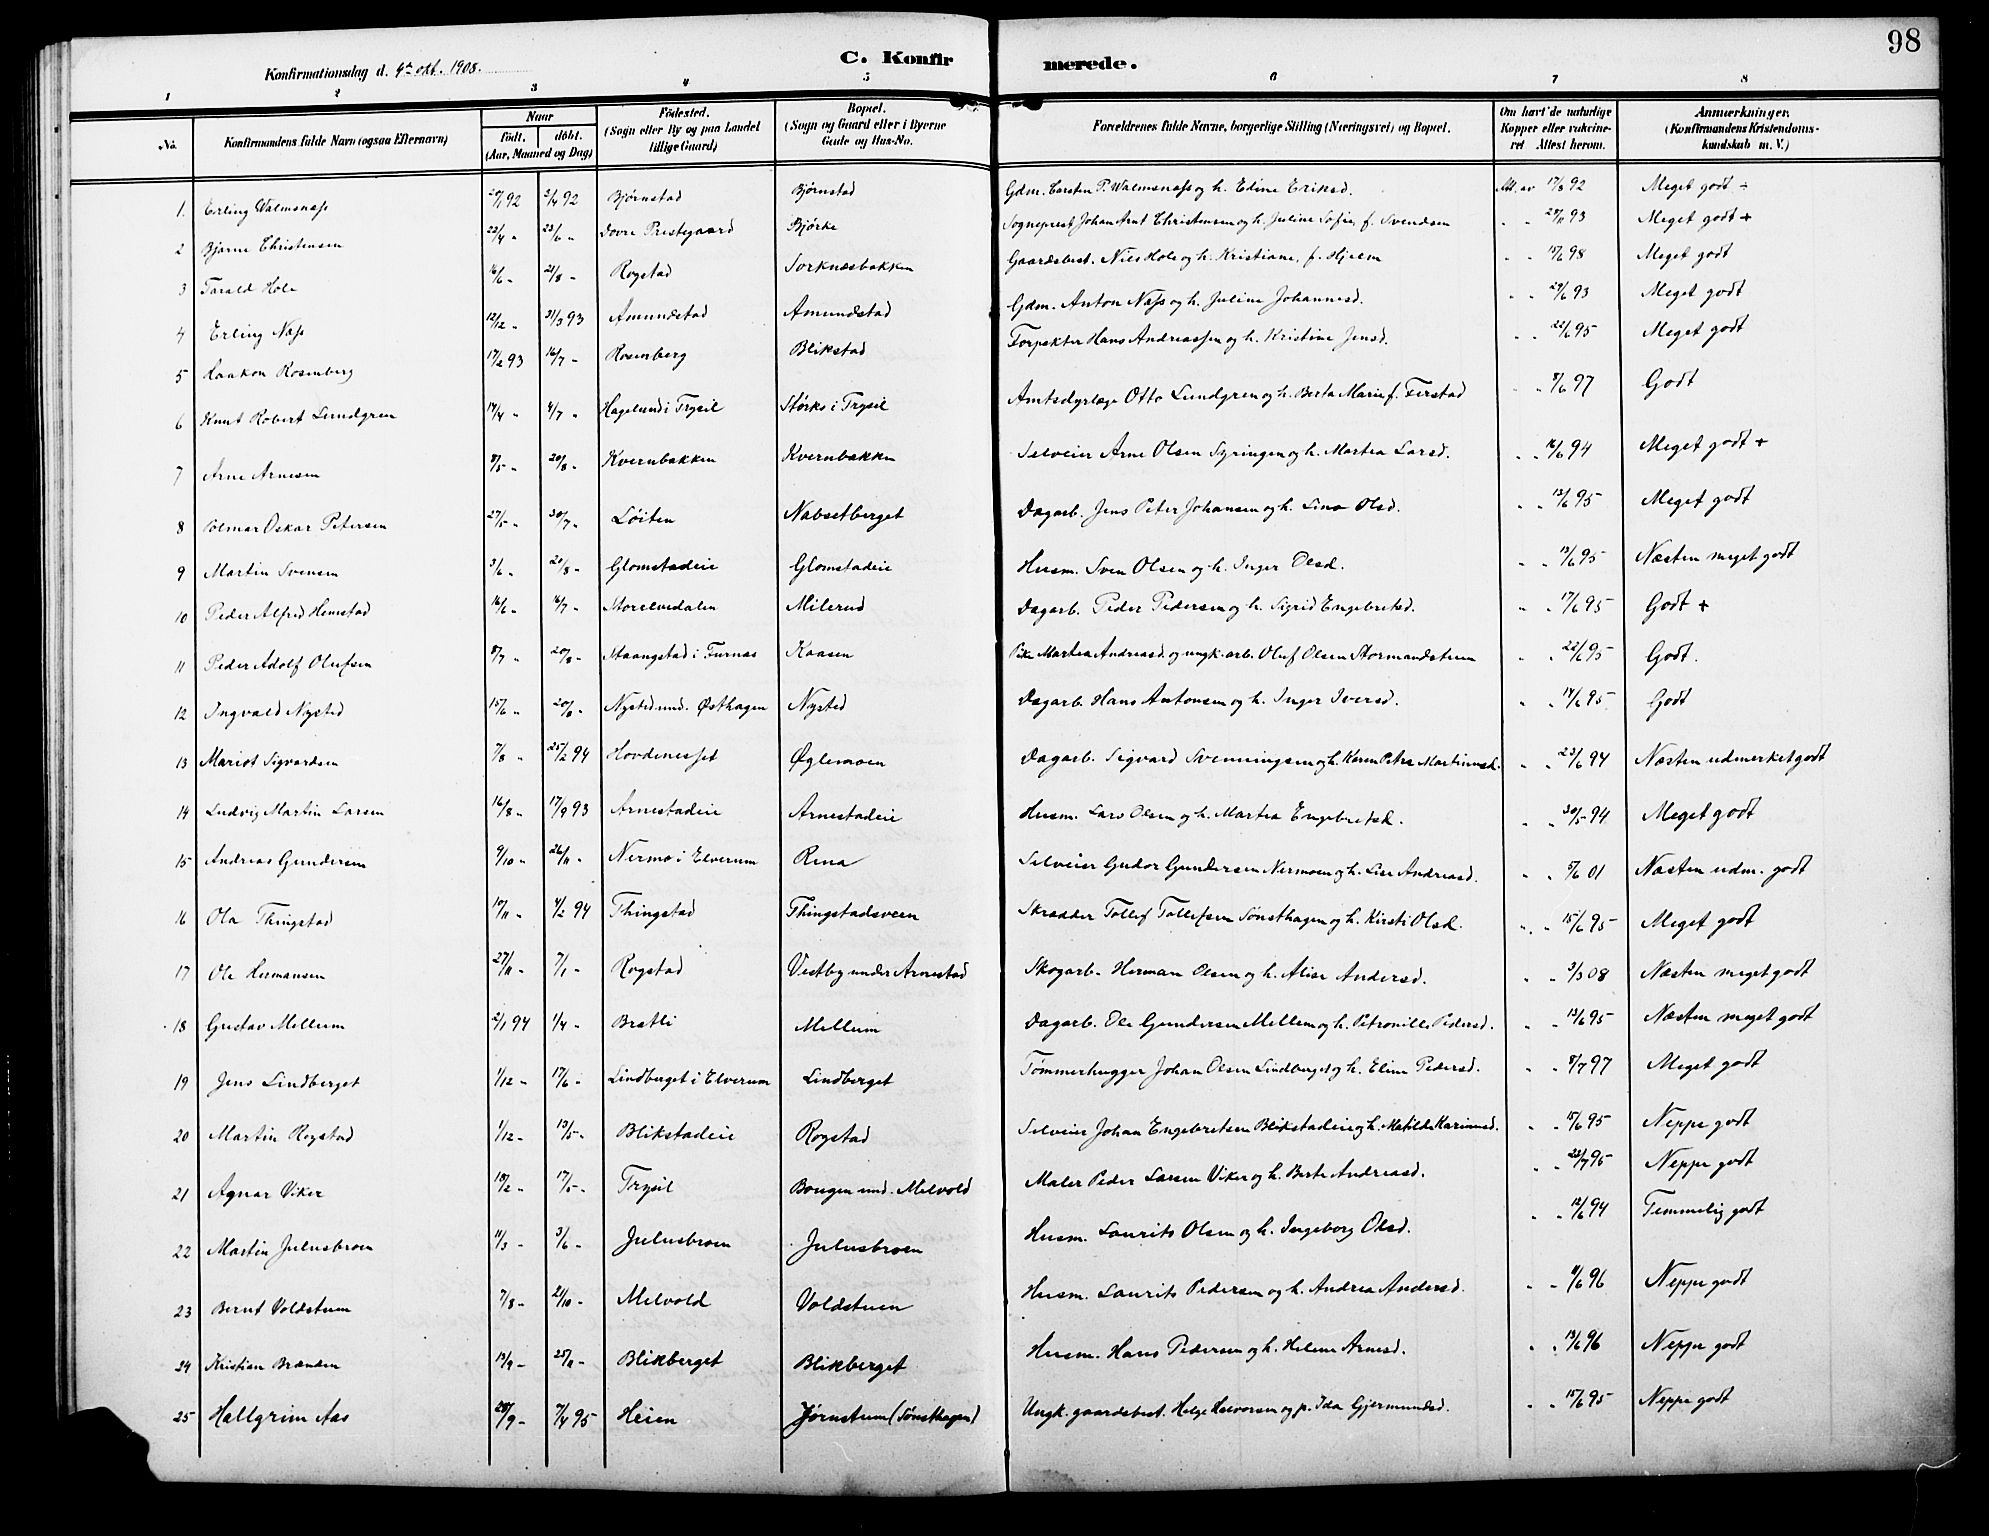 98
Konfirmationsdag d. 4de okt. 1908.
C. Konfirmerede.
1 2 3 4 5 6 7 8
No. Konfirmandens fulde Navn (ogsaa Efternavn) Naar født. døbt. (Aar, Maaned og Dag) Fødested. (Sogn eller By og paa Landet tillige Gaard) Bopæl. (Sogn og Gaard eller i Byerne Gade og Hus-No. Forældrenes fulde Navne, borgerlige Stilling (Næringsvei) og Bopæl. Om havt de naturlige Kopper eller vakcineret Attest herom. Anmærkninger. (Konfirmandens Kristendomskundskab m. V.)
1. Erling Walmsnæss 20/1 92 3/4 92 Bjørnstad Bjørnstad Gdm. Karsten P. Walmsnæss og h. Edine Eriksd. Att. av 17/8 92 Meget godt ÷
2 Bjarne Christensen 22/4 " 23/6 " Dovre Prestegaard Bjørke Sogneprest Johan Arnt Christensen og h. Juline Sofie, f. Svendsen " " 29/11 93 Meget godt +
3 Tarald Hole 16/6 - 21/8 - Rogstad Sorknæsbakken Gaardsbest. Nils Hole og h. Kristiane, f. Hjelm " " 15/6 98 Meget godt
4 Erling Næss 12/12 " 31/3 93 Amundstad Amundstad Gdm. Anton Næss og h. Juline Johannesd. " " 29/6 93 Meget godt
5 Haakon Rosenberg 17/2 93 16/7 - Rosenberg Blikstad Forpakter Hans Andreassen og h. Kristine Jensd. " " 22/6 95 Meget godt
6 Knut Robert Lundgren 14/4 " 4/7 " Hagelund i Trysil Størks i Trysil Amtsdyrlæge Otto Lundgren og h. Berta Marie f. Ferstad " " 8/6 97 Godt
7 Arne Arnesen 8/5 - 20/8 - Kvernbakken Kvernbakken Selveier Arne Olsen Syringen og h. Martea Larsd. " " 16/6 94 Meget godt +
8 Polmar Oskar Petersen 27/5 - 30/7 - Løiten Nabsetberget Dagarb. Jens Peter Johansen og h. Lina Olsd. " " 13/6 95 Meget godt
9 Martin Svensen 3/6 - 20/8 - Glomstadeie Glomstadeie Husm. Sven Olsen og h. Inger Olsd. " " 13/6 95 Næsten meget godt
10 Peder Alfred Hemstad 16/6 - 16/7 - Storelvedalen Milerud Dagarb. Peder Pedersen og h. Sigrid Engebretsd. " " 17/6 95 Godt +
11 Peder Adolf Olufsen 8/7 - 20/8 - Staangstad i Furnæs Kaasen Pike Martea Andreasd. og ungk. arb. Oluf Olsen Stormandstuen " " 22/6 95 Godt.
12 Ingvald Nysted 15/6 " 20/8 - Nysted und. Østhagen Nysted Dagarb. Hans Antonsen og h. Inger Iversd. " " 14/6 95 Godt
13 Mariot Sigvardsen 7/8 - 25/2 94 Hovdenesset Øglemoen Dagarb. Sigvard Svenningsen og h. Karen Petra Martinusd. " " 23/6 94 Næsten udmerket godt
14 Ludvig Martin Larsen 16/8 - 17/9 93 Arnestadeie Arnestadeie Husm. Lars Olsen og h. Martea Engebretsd. " " 30/5 94 Meget godt
15 Andreas Gundersen 9/10 - 26/11 - Nermo i Elverum Rena Selveier Gudor Gundersen Nermoen og h. Lise Andreasd. " " 5/6 01 Næsten udm. godt
16 Ola Thingstad 10/11 - 4/2 94 Thingstad Thingstadsveen Skrædder Tollef Tollefsen Sønsthagen og h. Kirsti Olsd. " " 15/6 95 Meget godt
17 Ole Hermansen 27/11 - 7/1 - Rogstad Vestby under Arnestad Skogarb. Herman Olsen og h. Alise Andersd. " " 3/3 08 Næsten meget godt
18 Gustav Mellum 2/1 94 1/4 - Bratli Mellum Dagarb. Ole Gundersen Mellem og h. Petronille Pedersd. " " 13/6 95 Næsten meget godt
19 Jens Lindberget 1/12 - 17/6 - Lindberget i Elverum Lindberget Tømmerhugger Johan Olsen Lindberget og h. Eline Pedersd. " " 8/7 97 Meget godt
20 Martin Rogstad 1/12 - 13/5 - Blikstadeie Rogstad Selveier Johan Engebretsen Blikstadeie og h. Matilde Karinusd. " " 15/6 95 Neppe godt
21 Agnar Viker 18/2 - 17/5 - Trysil Bougen und. Melvold Maler Peder Larsen Viker og h. Berte Andreasd. " " 22/7 95 Neppe godt
22 Martin Julusbroen 11/3 - 3/6 - Julusbroen Julusbroen Husm. Laurits Olsen og h. Ingeborg Olsd. " " 12/6 94 Temmelig godt
23 Bernt Voldstuen 7/8 - 21/10 - Melvold Voldstuen Husm. Laurits Pedersen og h. Andrea Andersd. " " 11/6 96 Neppe godt
24 Kristian Brænden 13/9 - 25/11 - Blikberget Blikberget Husm. Hans Pedersen og h. Helene Arnesd. " " 13/6 96 Neppe godt
25 Hallgrim Aas 28/9 - 7/4 95 Heien Jørnstuen (Sønsthagen) Ungk. gaardsbest. Helge Halvorsen og p. Ida Gjermundsd. " " 15/6 95 Neppe godt